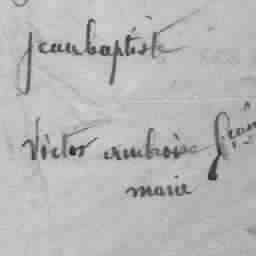 jeanbaptiste
victor ambroise
marie